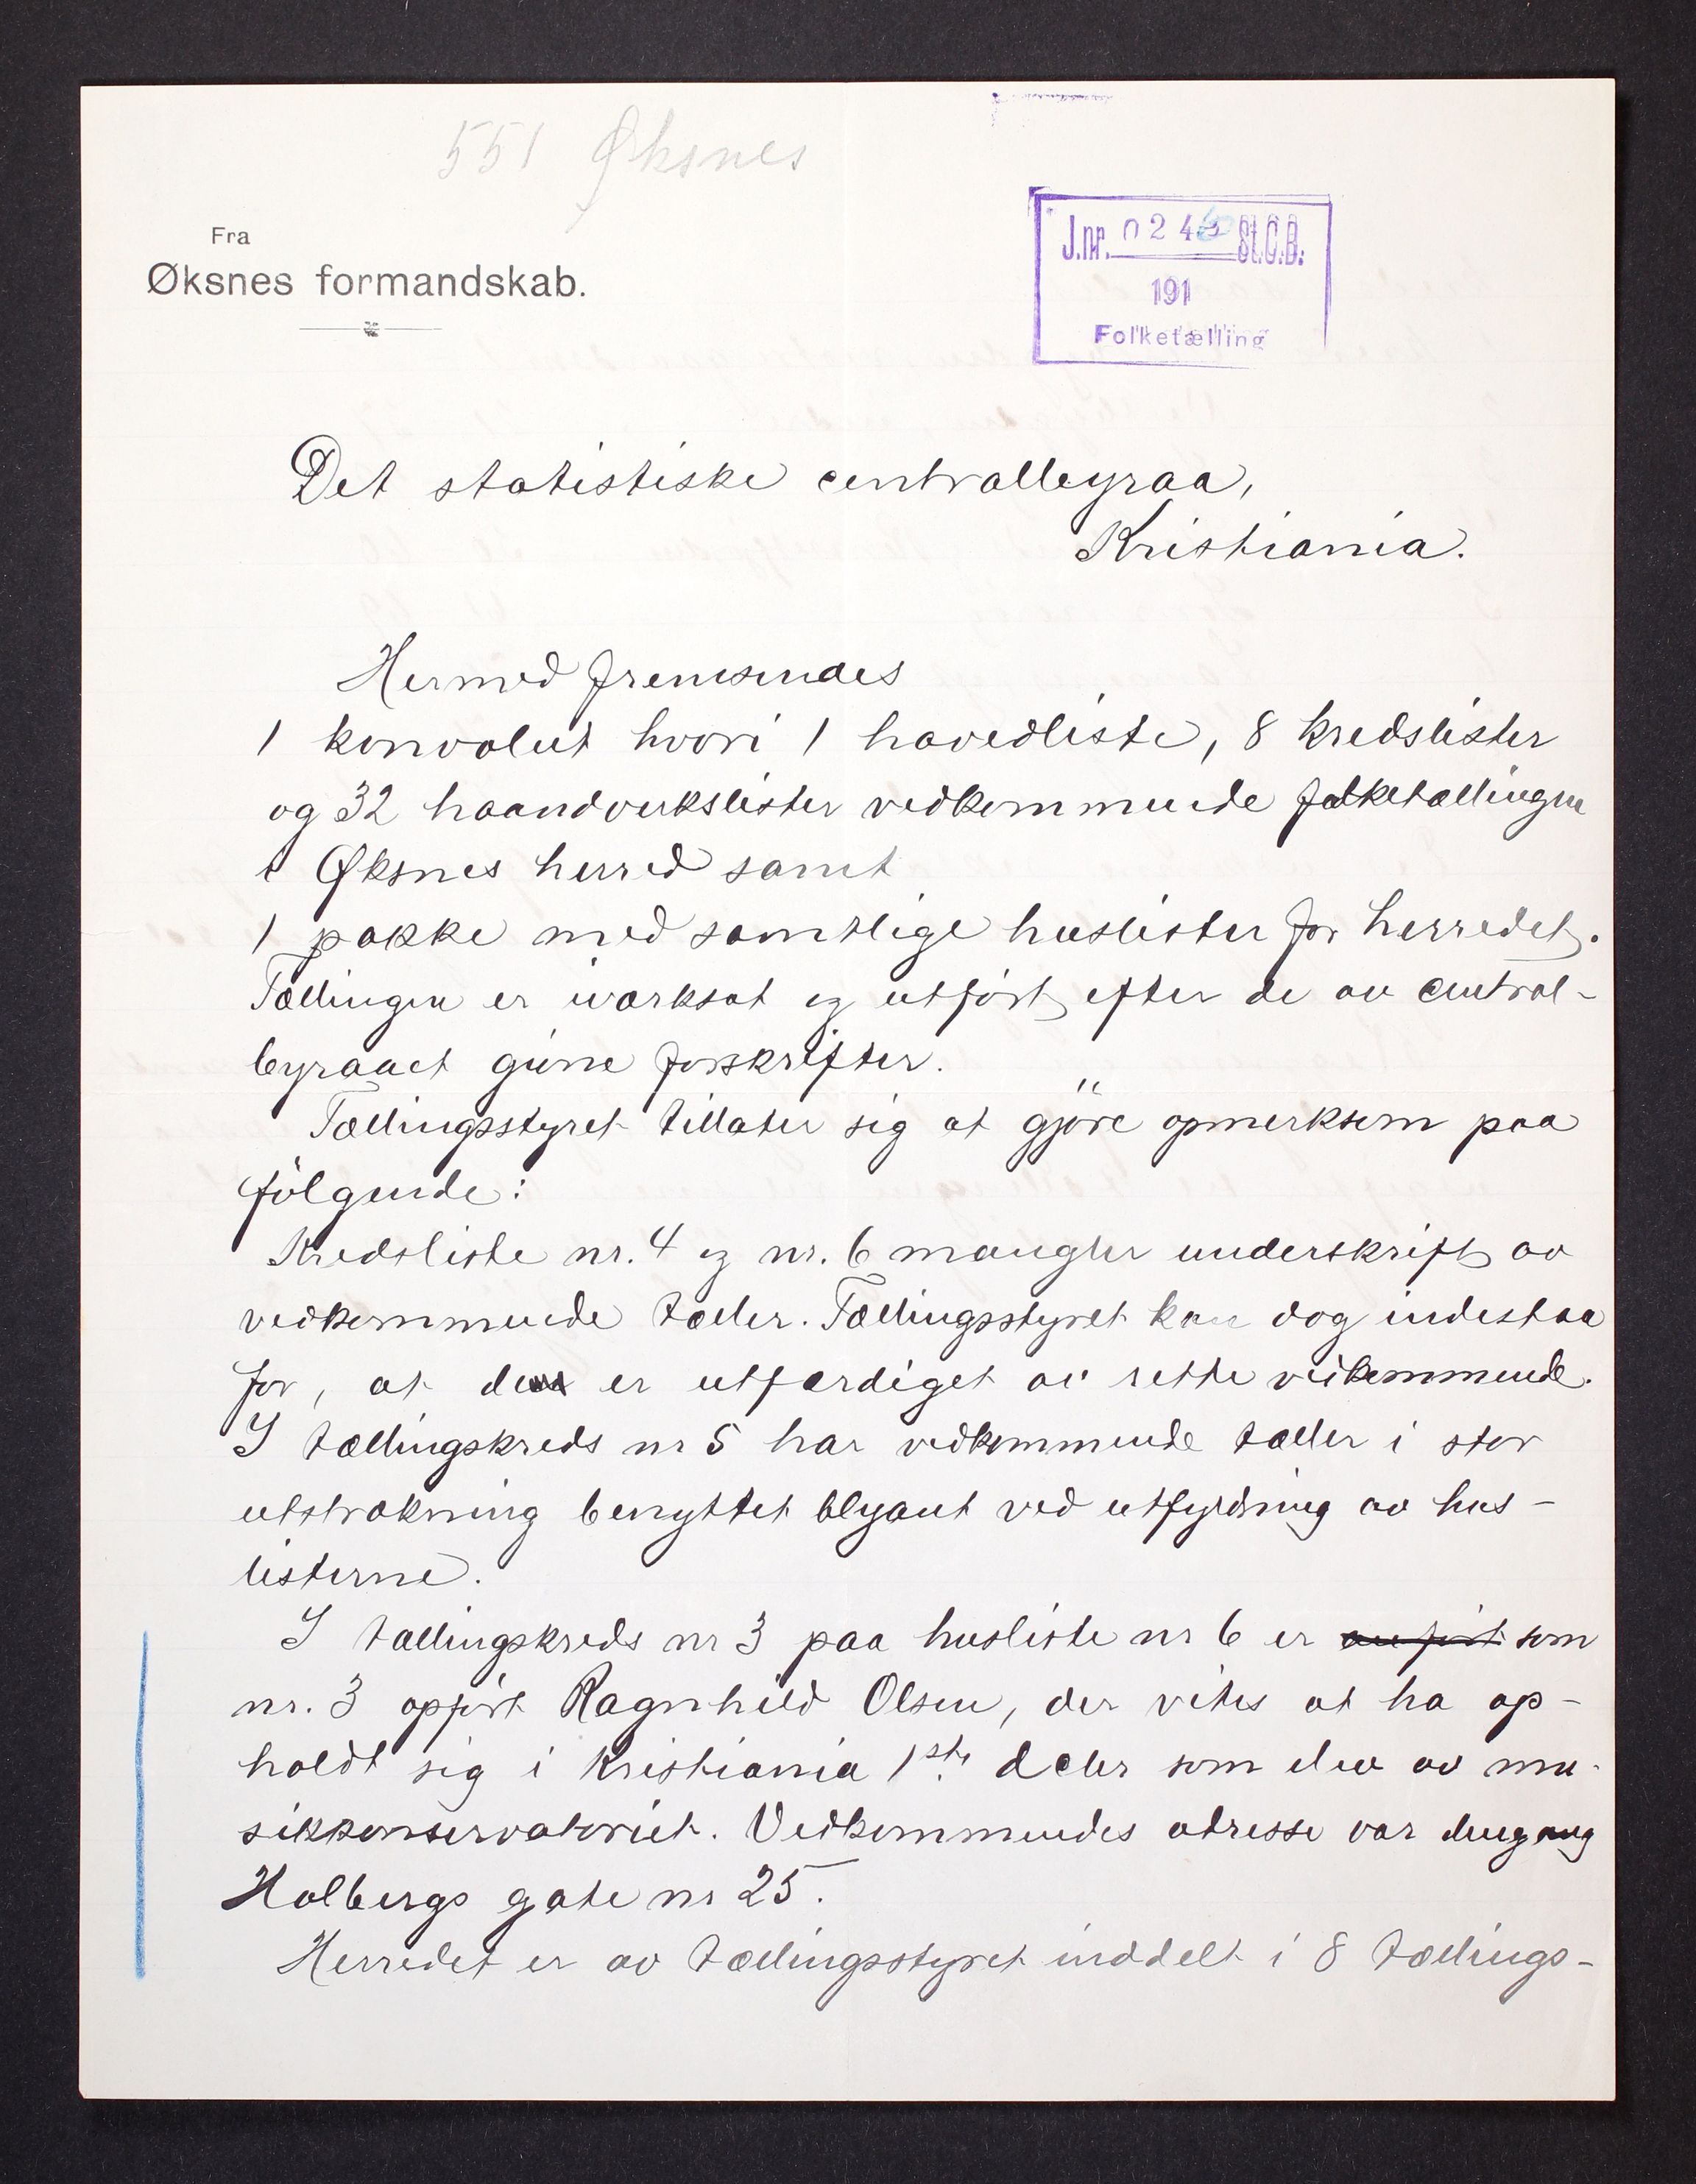 551 Øksnes
Fra
Øksnes formandskab.
J.nr. 024 St.C.B.
191
Folketælling
Det statistiske centralbyraa,
Kristiania.
Hermed fremsendes
1 konvolut hvori 1 hovedliste, 8 kredslister
og 32 haandverkslister vedkommende folketællingen
i Øksnes herred samt
1 pakke med samtlige huslister for herredet.
Tællingen er iværksat og utført efter de av central-
byraaet givne forskrifter.
Tællingsstyret tillater sig at gjöre opmerksom paa
følgende:
Kredsliste nr. 4 og nr. 6 mangler underskrift av
vedkommende tæller. Tællingsstyret kan dog indestaa
for, at er utfærdiget av rette vedkommende.
I tællingskreds nr 5 har vedkommende tæller i stor
utstrækning benyttet blyant ved utfyldning av hus-
listerne.
I tællingskreds nr 3 paa husliste nr 6 er anført som
nr. 3 opført Ragnhild Olsen, der vites at ha op-
holdt sig i Kristiania 1ste decbr som elev av mu-
sikkonservatoriet. Vedkommendes adresse var dengang
Holbergs gate nr 25.
Herredet er av tællingsstyret inddelt i 8 tællings-